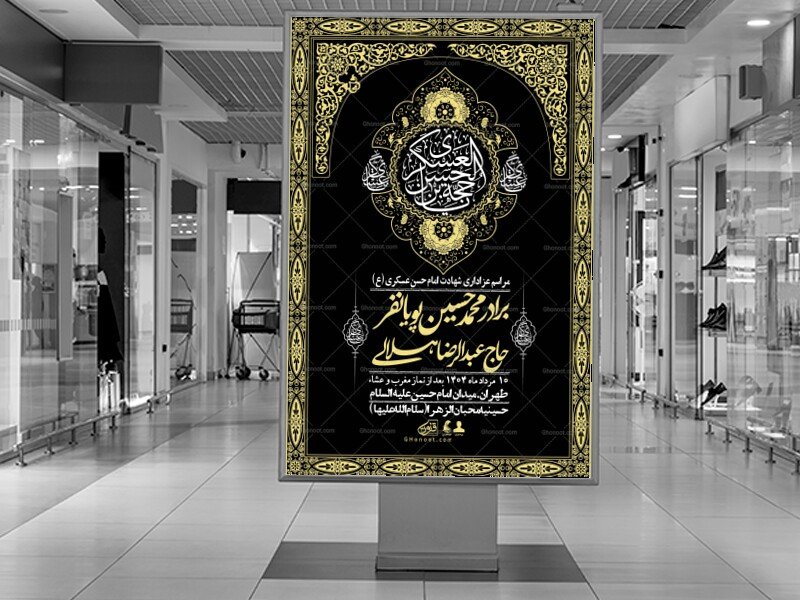 الحسن العسکری
مراسم عزاداری شهادت امام حسن عسکری (ع)
برادر محمدحسین پویانفر
حاج عبدالرضا هلالی
۱۰ مردادماه ۱۴۰۴ بعد از نماز مغرب و عشاء
طهران، میدان امام حسین علیه السلام
حسینیه محبان الزهرا (سلام الله علیها)
GHonoot.com